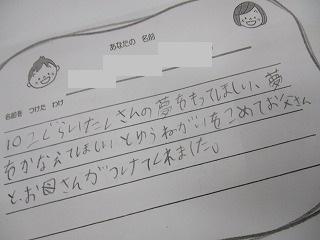 あなたの 名前
名前を つけた わけ
10こぐらいたくさんの夢をもってほしい、夢
をかなえてほしいとゆうねがいをこめてお父さん
と、お母さんがつけてくれました。